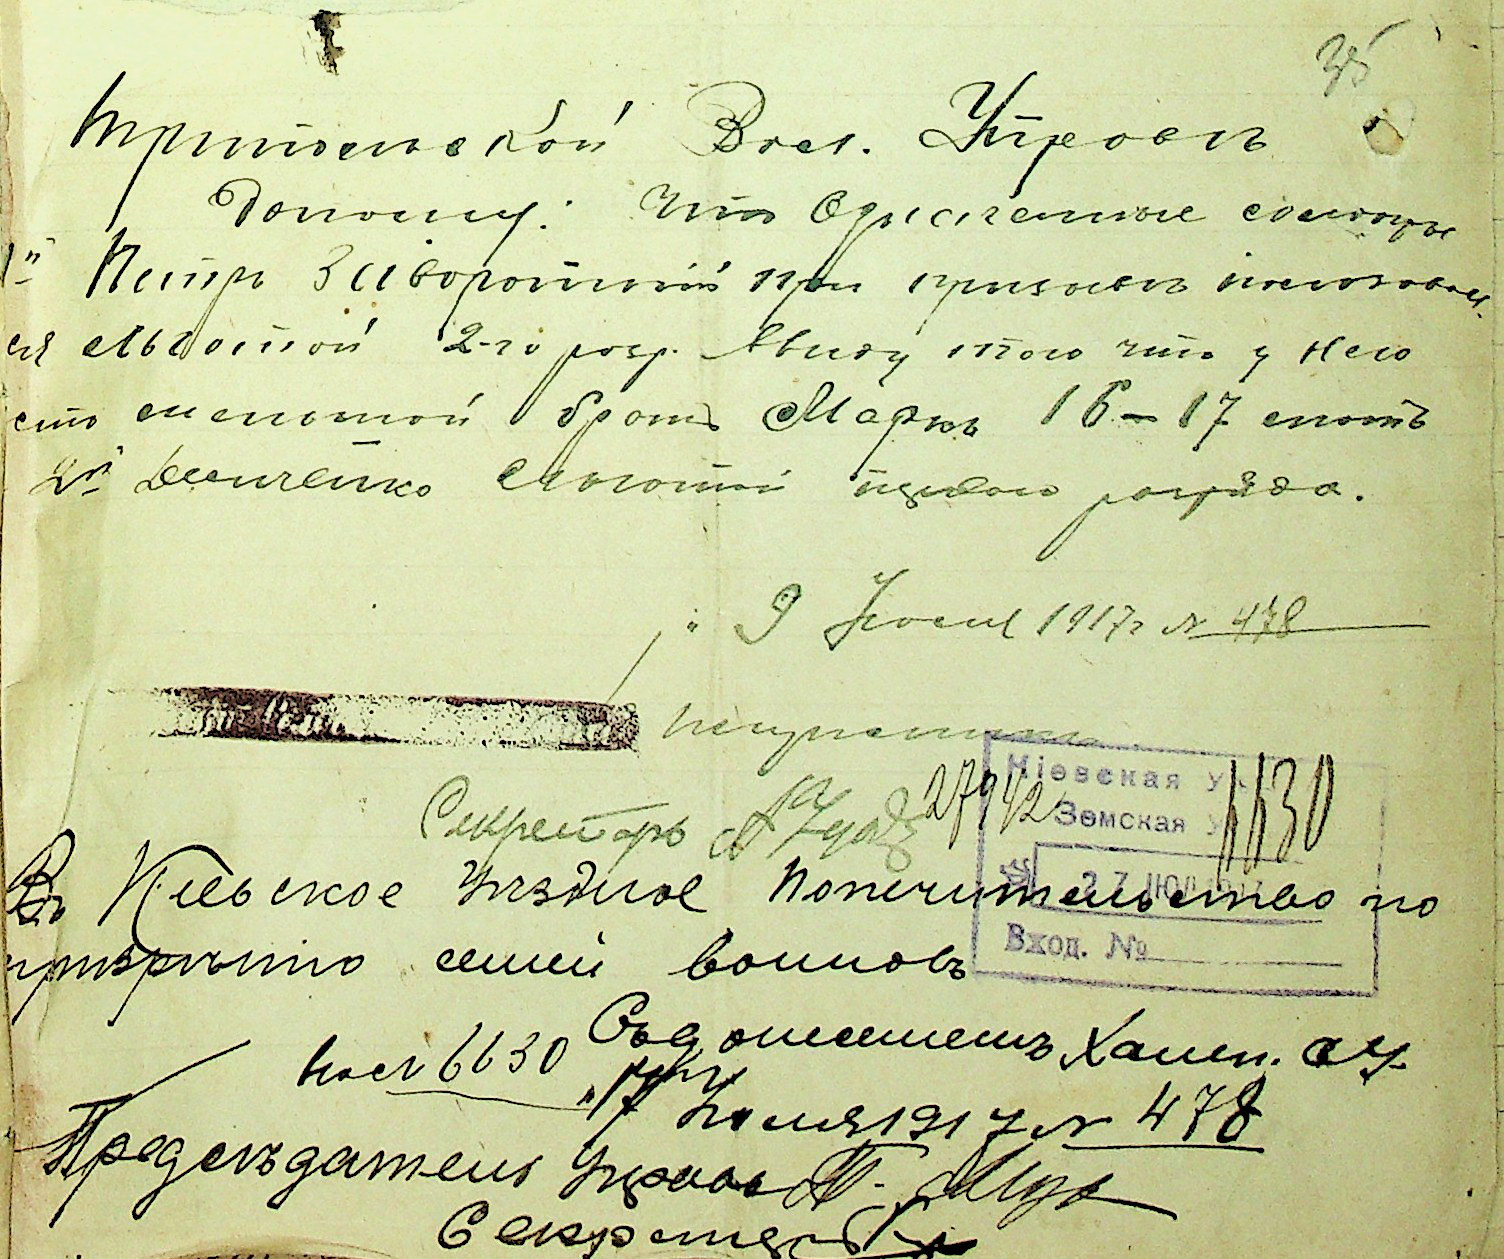 35
Трипольской Вол. Управѣ
Доношу: что Означенные солдаты
1й Петръ Заворотный при призывѣ пользовал
ся льготой 2-го разр. Ввиду того что у него
есть брат Маркъ 16-17 лѣтъ
2й Демченко Льготой перваго разряда.
" 9 Июля 1917 г № 478
Секретарь
27942
Кіевская У.
Земская У
6630
27 ІЮЛ 1917
Вход. №
Въ Кіевское Уѣздное Попечительство по
призрѣнію семей воиновъ
Съ донесеніемъ
6630
"17" Июля 1917 № 478
Предсѣдатель Управы
Секретарь